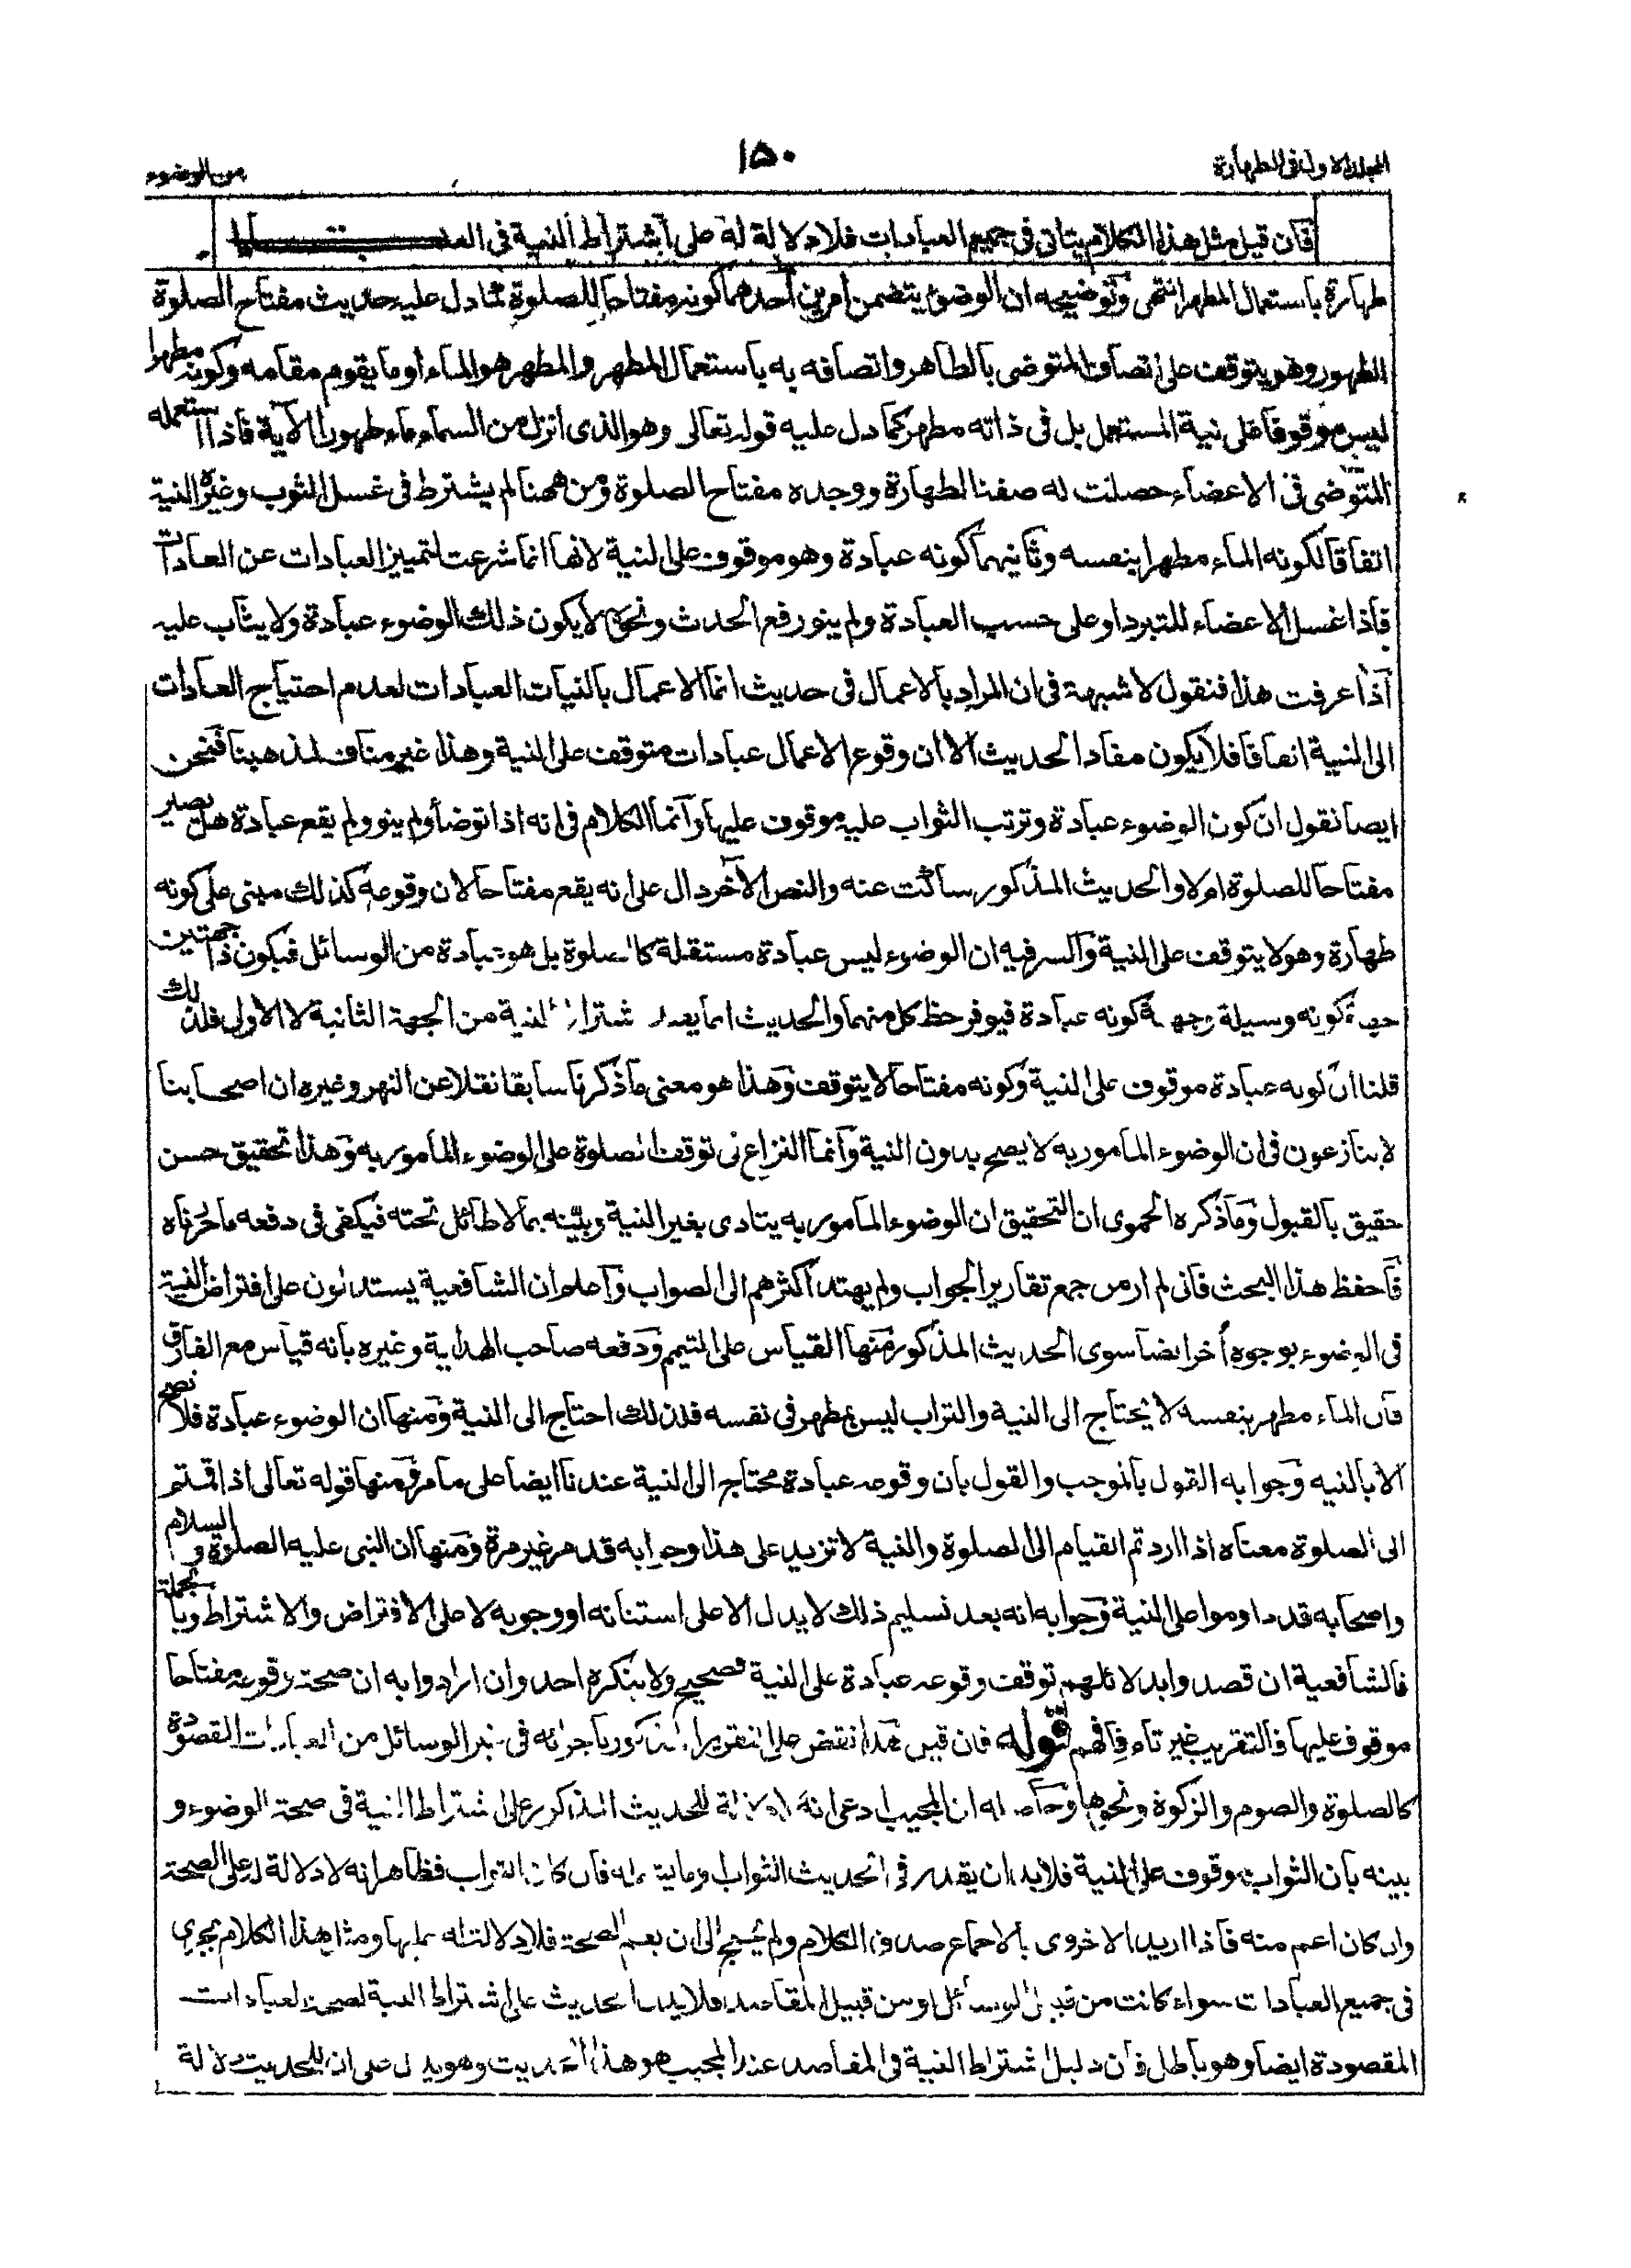 المجلد الاول فى الطهارة
١٥٠
من الوضوء
فان قيل مثل هذا الكلام يتاتى فى جميع العبادات فلا دلالة له على اشتراط النية فى العبادات
طهارة باستعمال المطهر انتهى وتوضيحه ان الوضوء يتضمن امرين احدهما كونه مفتاحا للصلوة كما دل عليه حديث مفتاح الصلوة
الطهور وهو يتوقف على اتصاف المتوضى بالطاهر واتصافه به باستعمال المطهر والمطهر هو الماء او ما يقوم مقامه وكونه مطهرا
ليس موقوفا على نية المستعمل بل فى ذاته مطهر كما دل عليه قوله تعالى وهو الذى انزل من السماء ماء طهورا الآية فاذا استعمله
المتوضى فى الاعضاء حصلت له صفة الطهارة ووجد مفتاح الصلوة ومن ههنا لم يشترط فى غسل الثوب وغيره النية
اتفاقا لكونه الماء مطهرا بنفسه وثانيهما كونه عبادة وهو موقوف على النية لانها انما شرعت لتمييز العبادات عن العادات
فاذا غسل الاعضاء للتبرد او على حسب العبادة ولم ينو رفع الحدث ونحوه لا يكون ذلك الوضوء عبادة ولا يثاب عليه
اذا عرفت هذا فنقول لا شبهة فى ان المراد بالاعمال فى حديث انما الاعمال بالنيات العبادات لعدم احتياج العادات
الى النية اتفاقا فلا يكون مفاد الحديث الا ان وقوع الاعمال عبادات متوقف على النية وهذا غير مناف لمذهبنا فنحن
ايضا نقول ان كون الوضوء عبادة وترتب الثواب عليه موقوف عليها وانما الكلام فى انه اذا توضأ ولم ينو ولم يقع عبادة هل يصير
مفتاحا للصلوة ام لا والحديث المذكور ساكت عنه والنص الآخر دال على انه يقع مفتاحا لان وقوعه كذلك مبنى على كونه
طهارة وهو لا يتوقف على النية والسر فيه ان الوضوء ليس عبادة مستقلة كالصلوة بل هو عبادة من الوسائل فيكون ذا جهتين
جهة كونه وسيلة وجهة كونه عبادة فيوفر حظ كل منهما والحديث انما يفيد اشتراط النية من الجهة الثانية لا الاولى فلذلك
قلنا ان كونه عبادة موقوف على النية وكونه مفتاحا لا يتوقف وهذا هو معنى ما ذكرنا سابقا نقلا عن النهر وغيره ان اصحابنا
لا ينازعون فى ان الوضوء المامور به لا يصح بدون النية وانما النزاع فى توقف الصلوة على الوضوء المامور به وهذا تحقيق حسن
حقيق بالقبول وما ذكره الحموى ان التحقيق ان الوضوء المامور به يتادى بغير النية وبينه بما لا طائل تحته فيكفى فى دفعه ما حررناه
فاحفظ هذا البحث فانى لم ار من جمع تقارير الجواب ولم يهتد اكثرهم الى الصواب واعلم ان الشافعية يستدلون على افتراض النية
فى الوضوء بوجوه أخر ايضا سوى الحديث المذكور منها القياس على التيمم ودفعه صاحب الهداية وغيره بانه قياس مع الفارق
فان الماء مطهر بنفسه لا يحتاج الى النية والتراب ليس بمطهر فى نفسه فلذلك احتاج الى النية ومنها ان الوضوء عبادة فلا تصح
الا بالنيه وجوابه القول بالموجب والقول بان وقوعه عبادة محتاج الى النية عندنا ايضا على ما مر ومنها قوله تعالى اذا قمتم
الى الصلوة معناه اذا اردتم القيام الى الصلوة والنية لا تزيد على هذا وجوابه قد مر غير مرة ومنها ان النبى عليه الصلوة والسلام
واصحابه قد داوموا على النية وجوابه انه بعد تسليم ذلك لا يدل الا على استنانه او وجوبه لا على الافتراض والاشتراط وبالجملة
فالشافعية ان قصدوا بدلائلهم توقف وقوعه عبادة على النية فصحيح ولا ينكره احد وان ارادوا به ان صحته وقوعه مفتاحا
موقوف عليها فالتقريب غير تام فافهم قوله فان قيل هذا نقض على التقرير المذكور باجرائه فى غير الوسائل من العبادات المقصودة
كالصلوة والصوم والزكوة ونحوها وحاصله ان المجيب ادعى انه لا دلالة للحديث المذكور على اشتراط النية فى صحة الوضوء و
بينه بان الثواب موقوف على النية فلا بد ان يقدر فى الحديث الثواب وما يشمله فان كان الثواب فظاهر انه لا دلالة له على الصحة
وان كان اعم منه فاذا اريد الاخروى بالاجماع صدق الكلام ولم يحتج الى ان يعم الصحة فلا دلالة له عليها ومثل هذا الكلام يجرى
فى جميع العبادات سواء كانت من قبيل الوسائل او من قبيل المقاصد فلا يدل الحديث على اشتراط النية لصحة العبادات
المقصودة ايضا وهو باطل فان دليل اشتراط النية فى المقاصد عند المجيب هو هذا الحديث وهو يدل على ان للحديث دلالة